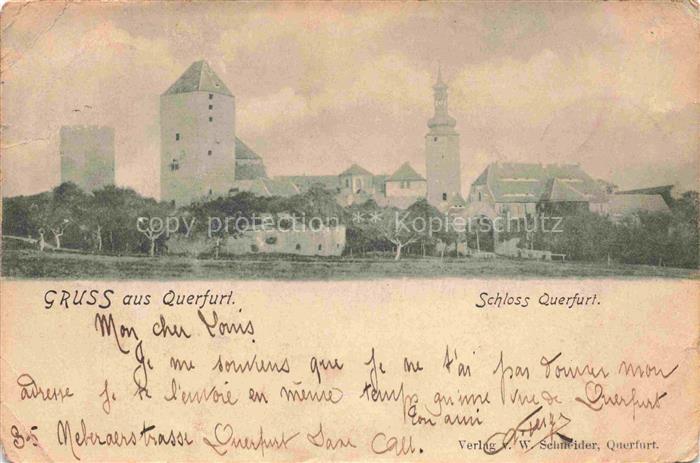 copy protection ** Kopierschutz
GRUSS aus Querfurt. Schloss Querfurt.
Mon cher Louis
Je me souviens que je ne t'ai pas donner mon
adresse je te l'envoie en même temps qu'une vue de Querfurt
Ton ami
Querfurt Saxe All.
Verlag v. W. Schneider, Querfurt.